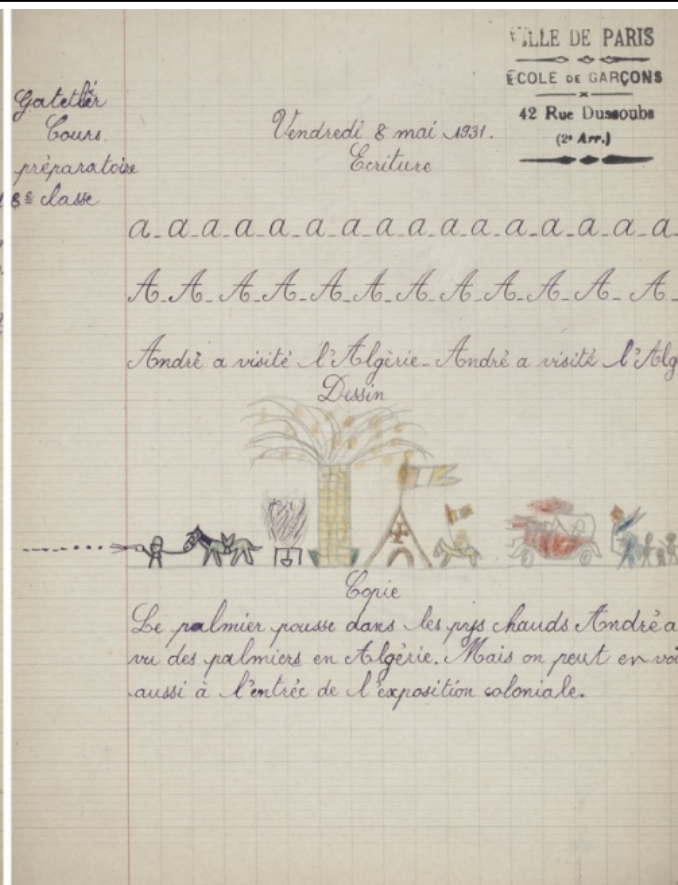 VILLE DE PARIS
ÉCOLE DE GARÇONS
42 Rue Dussoubs
(2e Arr.)
Gatellier
Cours
préparatoire
8e classe
Vendredi 8 mai 1931.
Ecriture
a_a_a_a_a_a_a_a_a_a_a_a_a_a_a_a
A_A_A_A_A_A_A_A_A_A_A_A_
André a visité l'Algérie_André a visité l'Alg
Dessin
Copie
Le palmier pousse dans les pays chauds André a
vu des palmiers en Algérie. Mais on peut en voi
aussi à l'entrée de l'exposition coloniale.